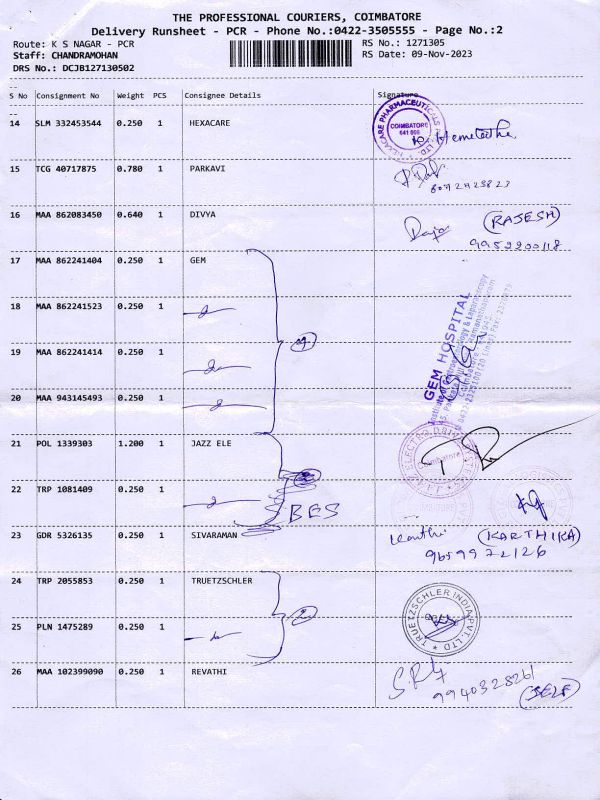 THE PROFESSIONAL COURIERS, COIMBATORE
Delivery Runsheet - PCR - Phone No.:0422-3505555 - Page No.:2
Route: K S NAGAR - PCR
RS No.: 1271305
Staff: CHANDRAMOHAN
RS Date: 09-Nov-2023
DRS No.: DCJB127130502
S No Consignment No Weight PCS Consignee Details Signature
14 SLM 332453544 0.250 1 HEXACARE
HEXACARE PHARMACEUTICALS COIMBATORE 641 006
15 TCG 40717875 0.780 1 PARKAVI
16 MAA 862083450 0.640 1 DIVYA
(RAJESH)
9952200118
17 MAA 862241404 0.250 1 GEM
18 MAA 862241523 0.250 1
19 MAA 862241414 0.250 1
GEM HOSPITAL
20 MAA 943145493 0.250 1
21 POL 1339303 1.200 1 JAZZ ELE
Coimbatore
22 TRP 1081409 0.250 1
BES
23 GDR 5326135 0.250 1 SIVARAMAN
(KARTHIKA)
9659972126
24 TRP 2055853 0.250 1 TRUETZSCHLER
TRUETZSCHLER INDIA PVT. LTD
25 PLN 1475289 0.250 1
26 MAA 102399090 0.250 1 REVATHI
9940328261
(SELF)